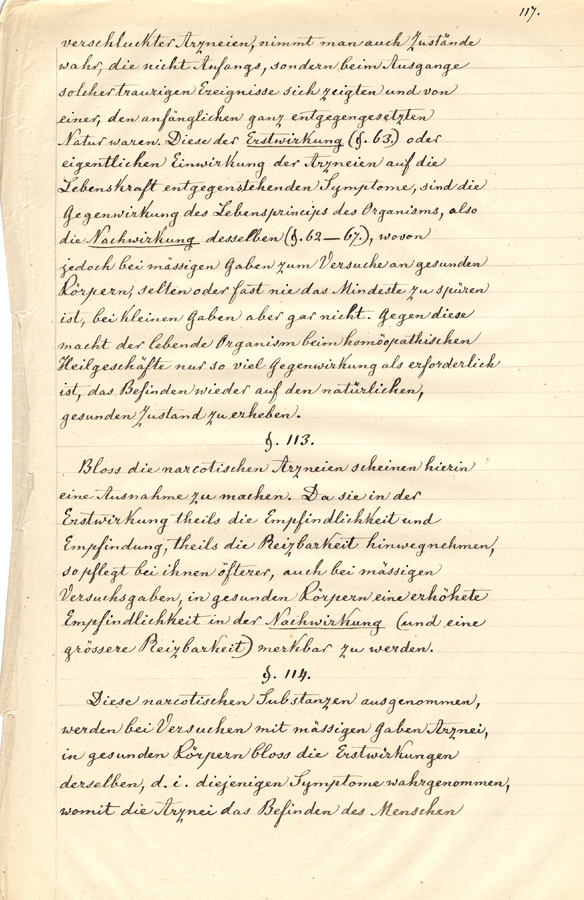 117.
verschluckter Arzneien, nimmt man auch Zustände
wahr, die nicht Anfangs, sondern beim Ausgange
solcher traurigen Ereignisse sich zeigten und von
einer, den anfänglichen ganz entgegengesetzten
Natur waren. Diese der Erstwirkung (§. 63.) oder
eigentlichen Einwirkung der Arzneien auf die
Lebenskraft entgegenstehenden Symptome, sind die
Gegenwirkung des Lebensprincips des Organisms, also
die Nachwirkung desselben (§. 62 — 67.), wovon
jedoch bei mässigen Gaben zum Versuche an gesunden
Körpern, selten oder fast nie das Mindeste zu spüren
ist, bei kleinen Gaben aber gar nicht. Gegen diese
macht der lebende Organism beim homöopathischen
Heilgeschäfte nur so viel Gegenwirkung als erforderlich
ist, das Befinden wieder auf den natürlichen,
gesunden Zustand zu erheben.
§. 113.
Bloss die narcotischen Arzneien scheinen hierin
eine Ausnahme zu machen. Da sie in der
Erstwirkung theils die Empfindlichkeit und
Empfindung, theils die Reizbarkeit hinwegnehmen,
so pflegt bei ihnen öfterer, auch bei mässigen
Versuchsgaben, in gesunden Körpern eine erhöhete
Empfindlichkeit in der Nachwirkung (und eine
grössere Reizbarkeit) merkbar zu werden.
§. 114.
Diese narcotischen Substanzen ausgenommen,
werden bei Versuchen mit mässigen Gaben Arznei,
in gesunden Körpern bloss die Erstwirkungen
derselben, d. i. diejenigen Symptome wahrgenommen,
womit die Arznei das Befinden des Menschen